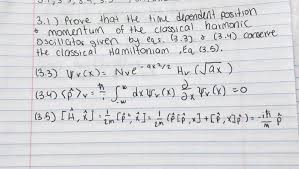 3.1.) Prove that the time dependent position
& momentum of the classical harmonic
Oscillator given by eqs. (3.3) & (3.4) conserve
the classical Hamiltonian, Eq (3.5).
(3.3) Ψᵥ(x) = Nᵥe^(-ax²/2) Hᵥ(√ax)
(3.4) <p̂>ᵥ = ħ/i ∫_{-∞}^{∞} dx Ψᵥ(x) ∂/∂x Ψᵥ(x) = 0
(3.5) [Ĥ, x̂] = 1/2m [p̂², x̂] = 1/2m (p̂[p̂,x] + [p̂,x]p̂) = -iħ/m p̂